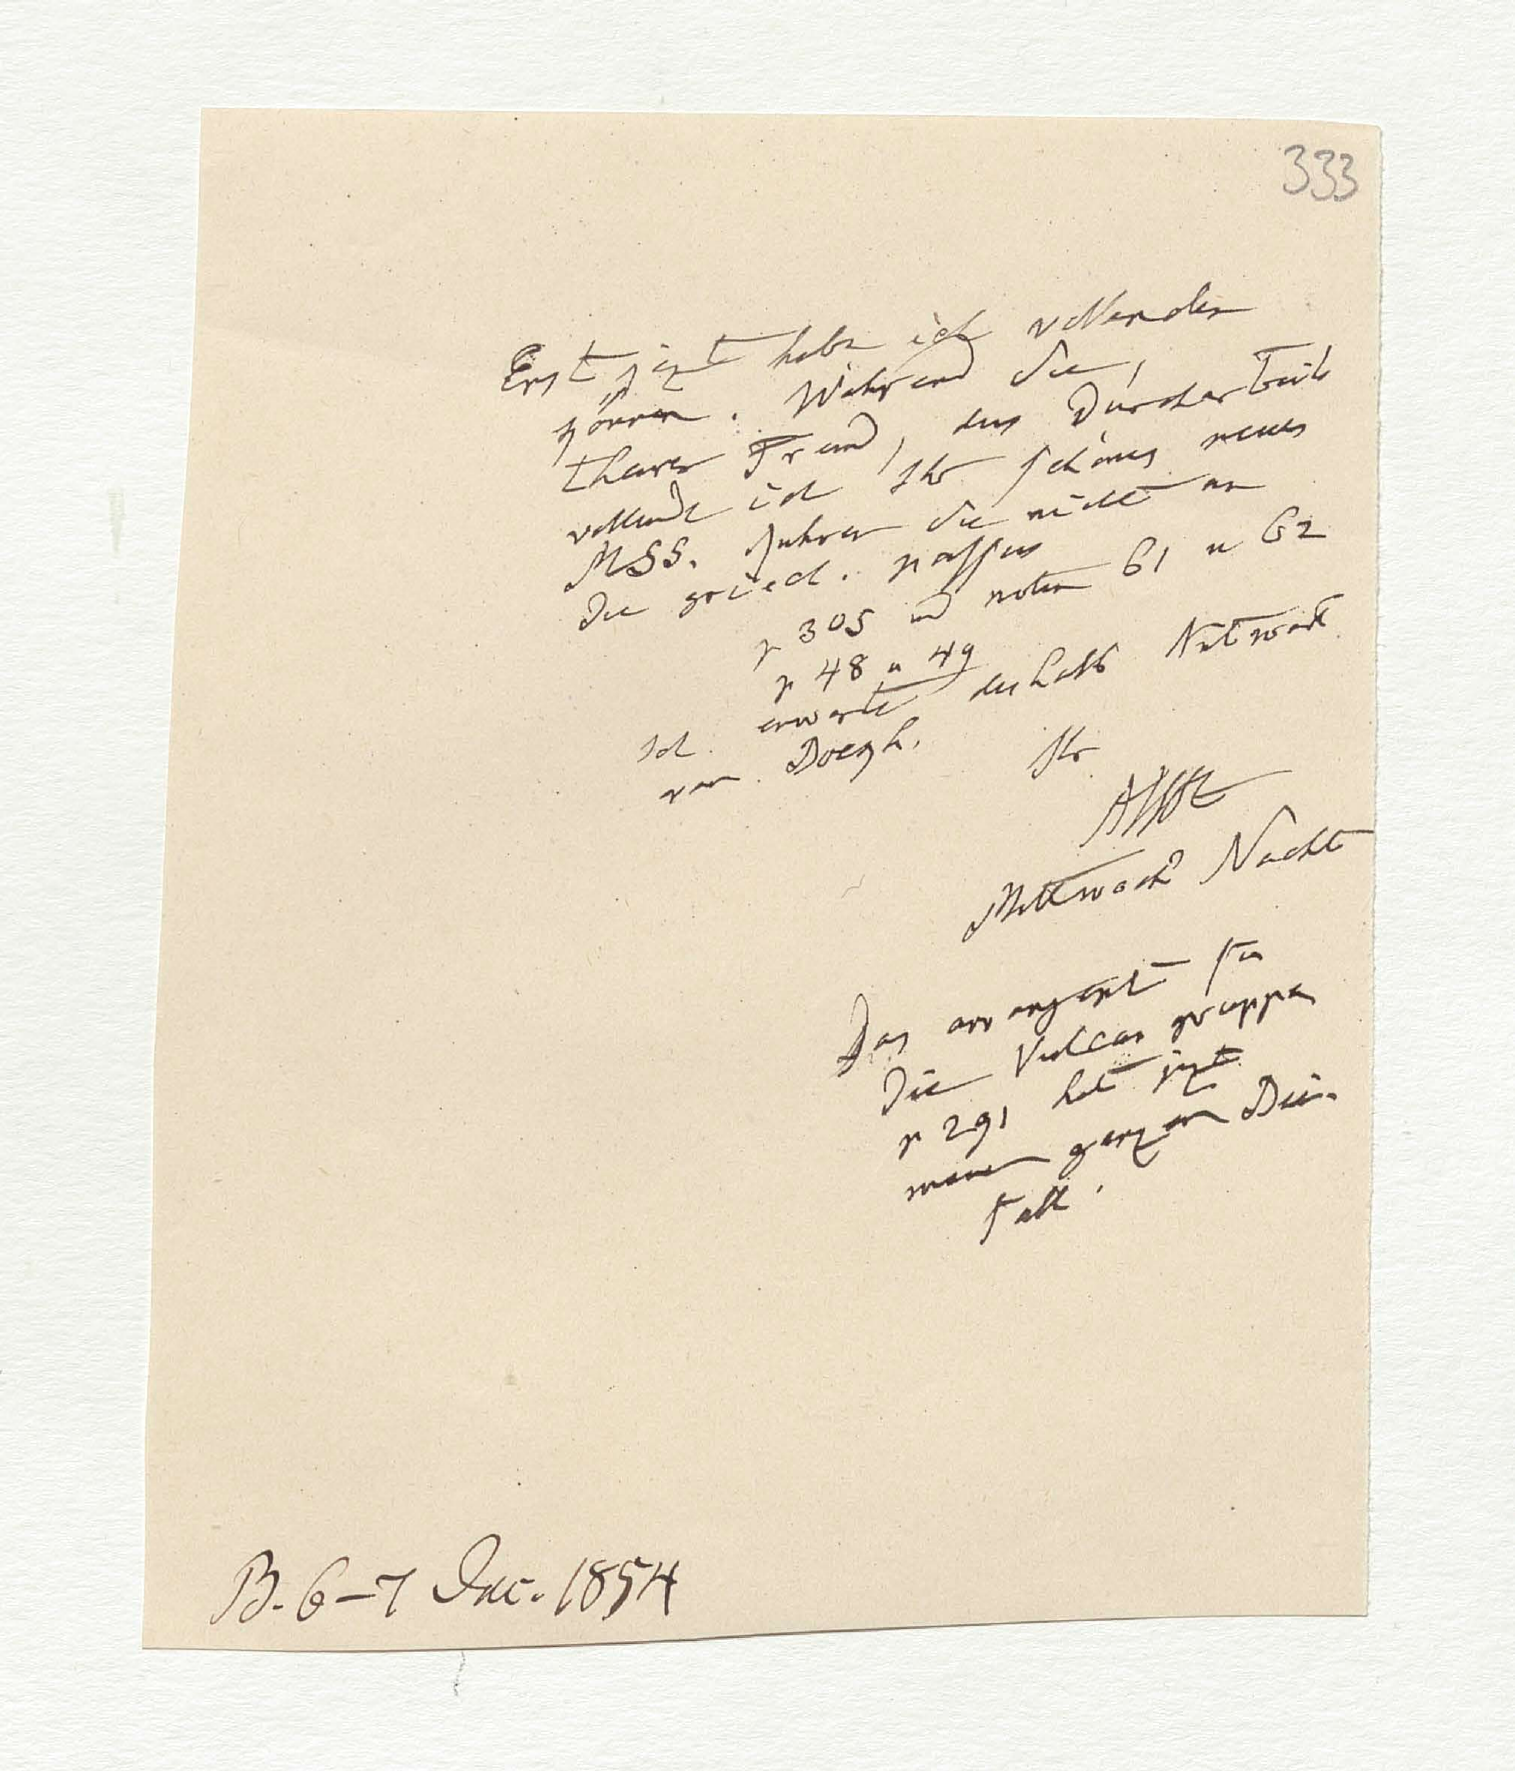 333
Erst jezt habe ich vollenden
können. Während Sie,
theurer Freund, das Durcharbeit
vollende ich Ihr schönes neues
MSS. Fuhren Sie nicht an
die griech. passus
p 305 und noten 61 u 62
p 48 u 49
Ich erwarte deshalb Antwort
von Boegh.
Ihr
AHt
Mittwoch Nacht
Das arrangent für
die Vulcan gruppen
p 291 hat jezt
meinen ganzen Bei-
fall.
B. 6-7 Dec. 1854